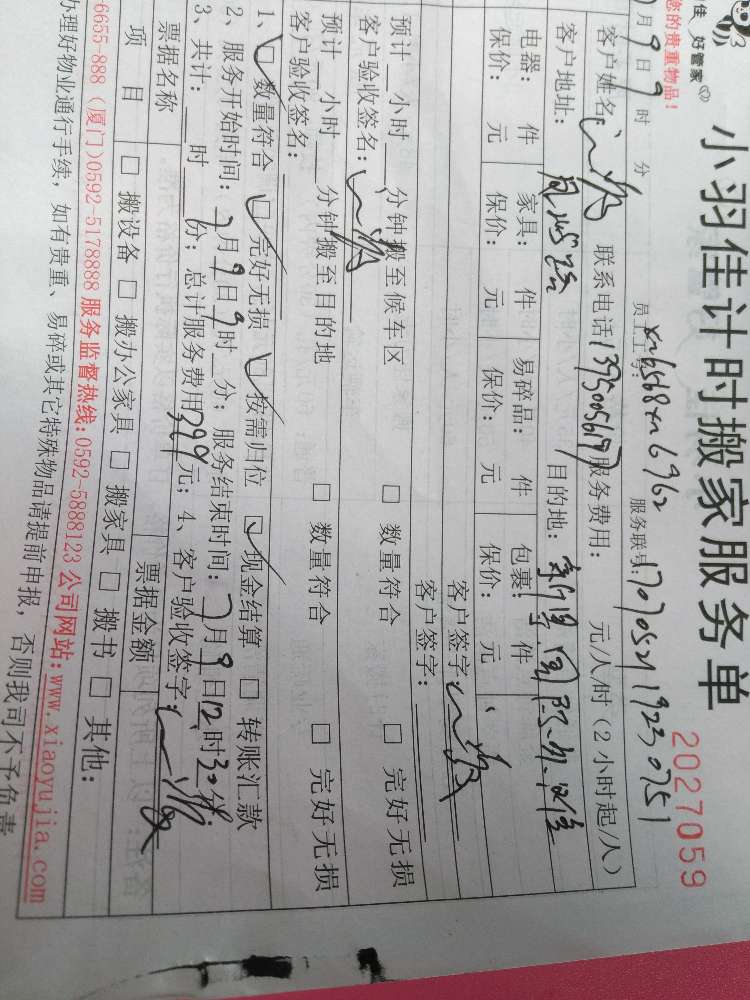 佳 好管家
您的贵重物品!
小羽佳计时搬家服务单
2027059
员工工号: xm6568 xm6962 服务联号: 170705211923 0751
月9日9时 分
客户姓名: 联系电话13950056197服务费用: 元/人/时(2小时起/人)
客户地址: 目的地:
电器: 件 家具: 件 易碎品: 件 包裹: 件
保价: 元 保价: 元 保价: 元 保价: 元
客户签字:
客户签字:
预计 小时 分钟搬至候车区 □ 数量符合 □ 完好无损
客户验收签名:
预计 小时 分钟搬至目的地 □ 数量符合 □ 完好无损
客户验收签名:
1、□ 数量符合 □ 完好无损 □ 按需归位 □ 现金结算 □ 转账汇款
2、服务开始时间: 7月9日9时 分; 服务结束时间: 7月9日12时30分;
3、共计: 时 份; 总计服务费用399元; 4、客户验收签字:
票据名称 票据金额
项 目 □ 搬设备 □ 搬办公家具 □ 搬家具 □ 搬书 □ 其他:
6655-888 (厦门)0592-5178888 服务监督热线:0592-5888123 公司网站:www.xiaoyujia.com
办理好物业通行手续, 如有贵重、易碎或其它特殊物品请提前申报, 否则我司不予负责